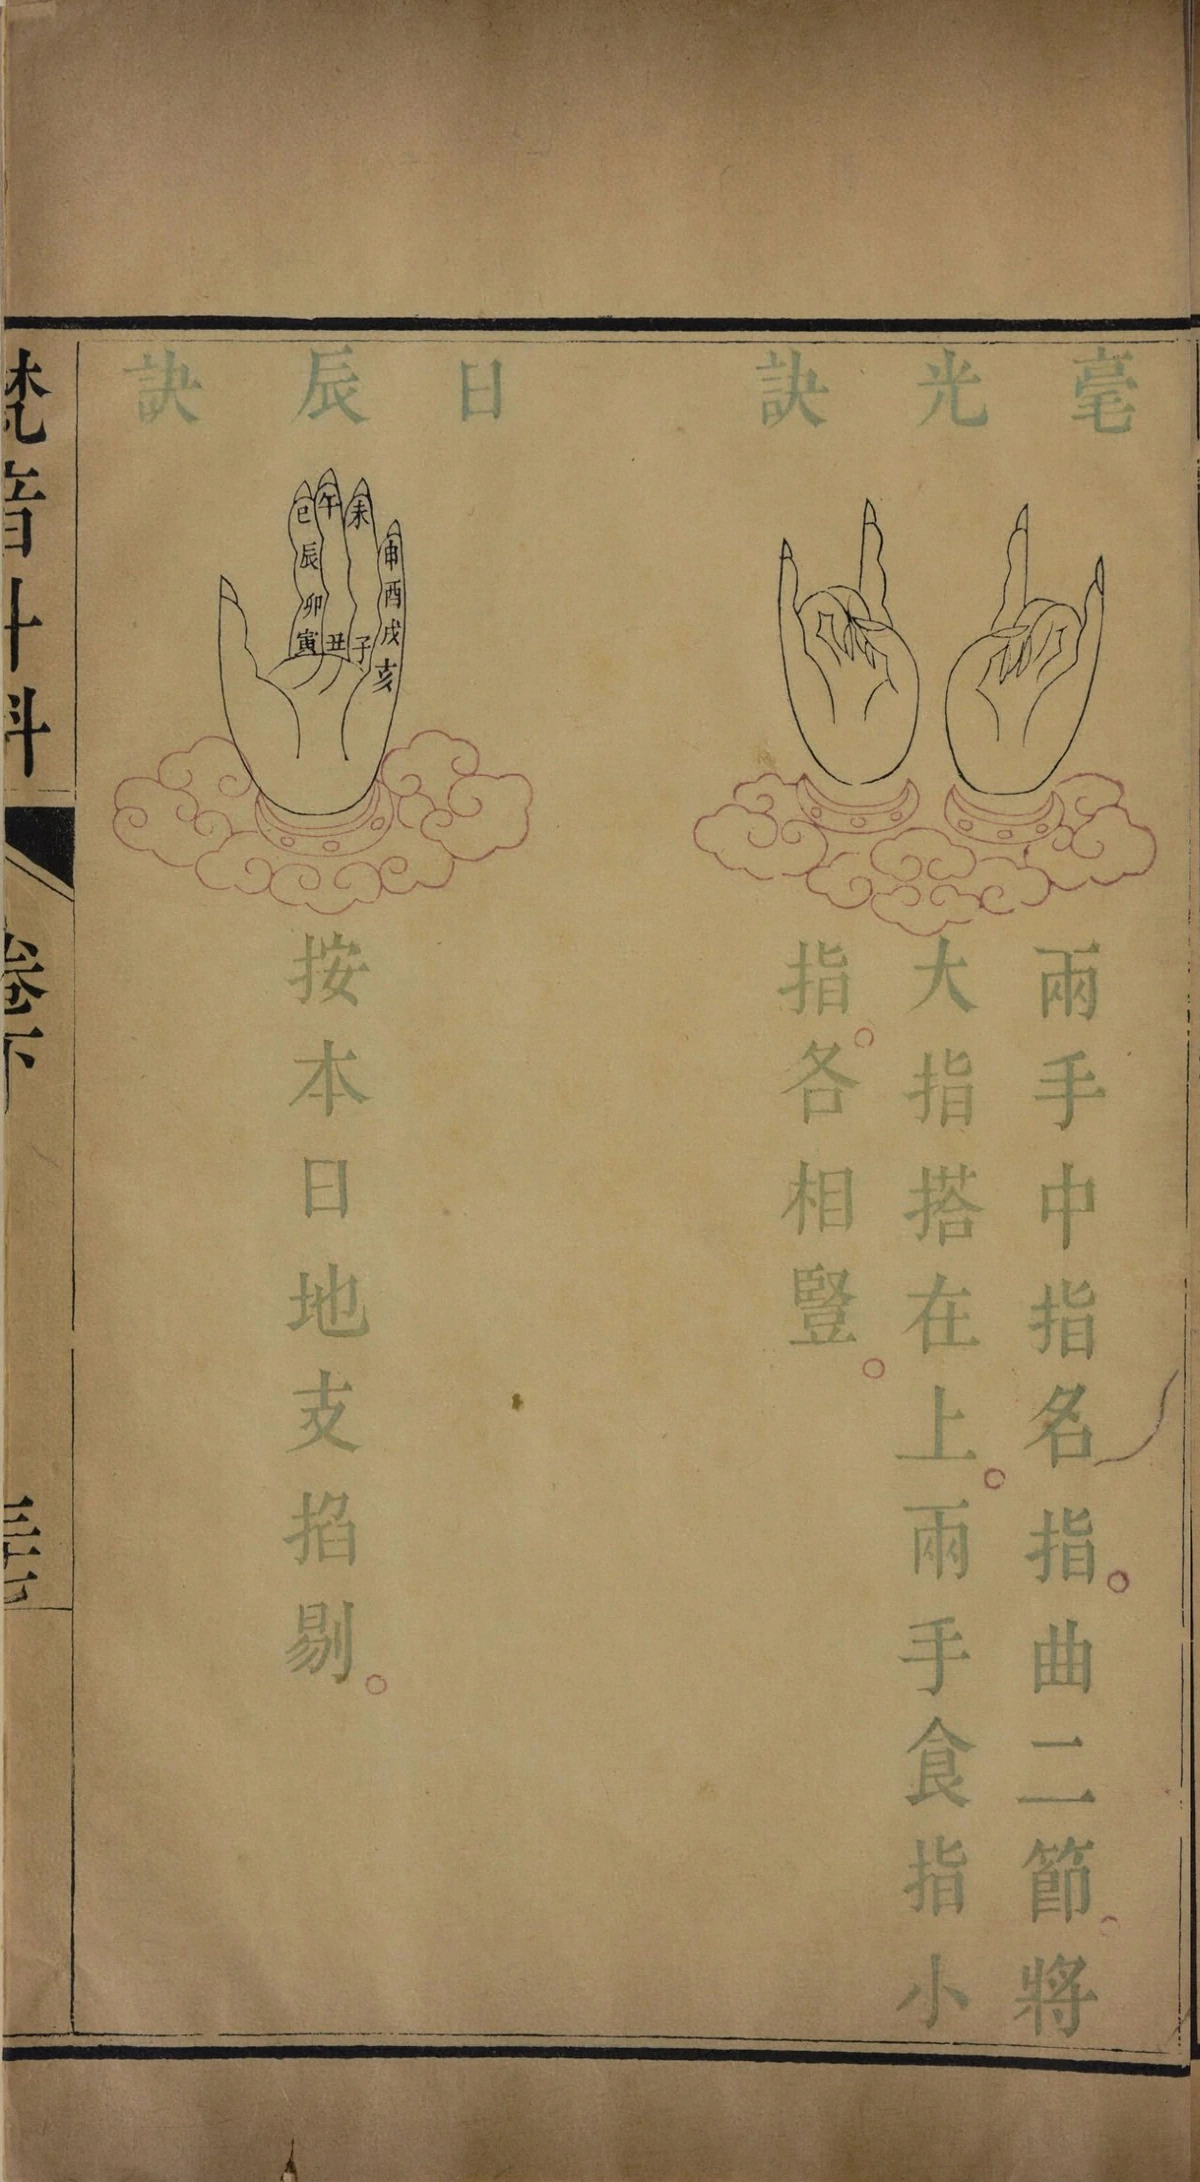 毫光訣
兩手中指名指。曲二節。將
大指搭在上。兩手食指小
指。各相豎。
日辰訣
巳
辰
卯
寅
午
丑
未
子
申
酉
戌
亥
按本日地支掐剔。
梵音斗科
卷下